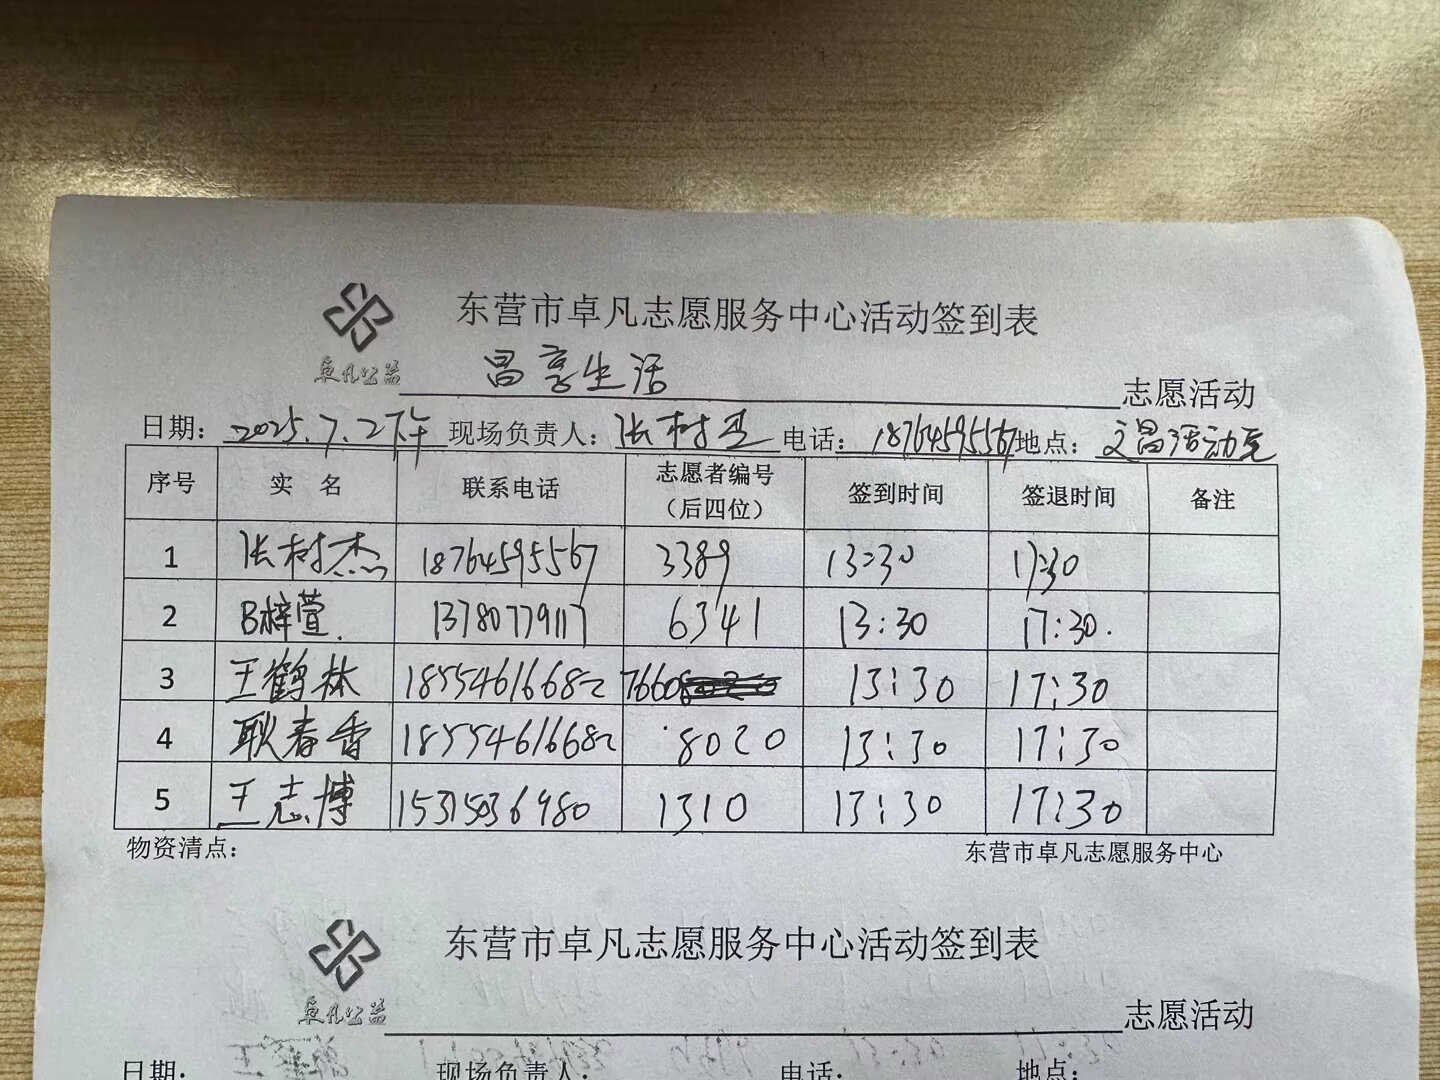 东营市卓凡志愿服务中心活动签到表
卓凡公益
昌享生活 志愿活动
日期: 2025.7.2下午 现场负责人: 张树杰 电话: 18764595567 地点: 文昌活动室
序号 实 名 联系电话 志愿者编号 (后四位) 签到时间 签退时间 备注
1 张树杰 18764595567 3389 13:30 17:30
2 梓萱. 13780779117 6341 13:30 17:30.
3 王鹤林 18554616682 7660 13:30 17:30
4 耿春香 18554616682 8020 13:30 17:30
5 王志博 15315036980 1310 13:30 17:30
物资清点: 东营市卓凡志愿服务中心
东营市卓凡志愿服务中心活动签到表
卓凡公益
志愿活动
日期: 现场负责人: 电话: 地点: